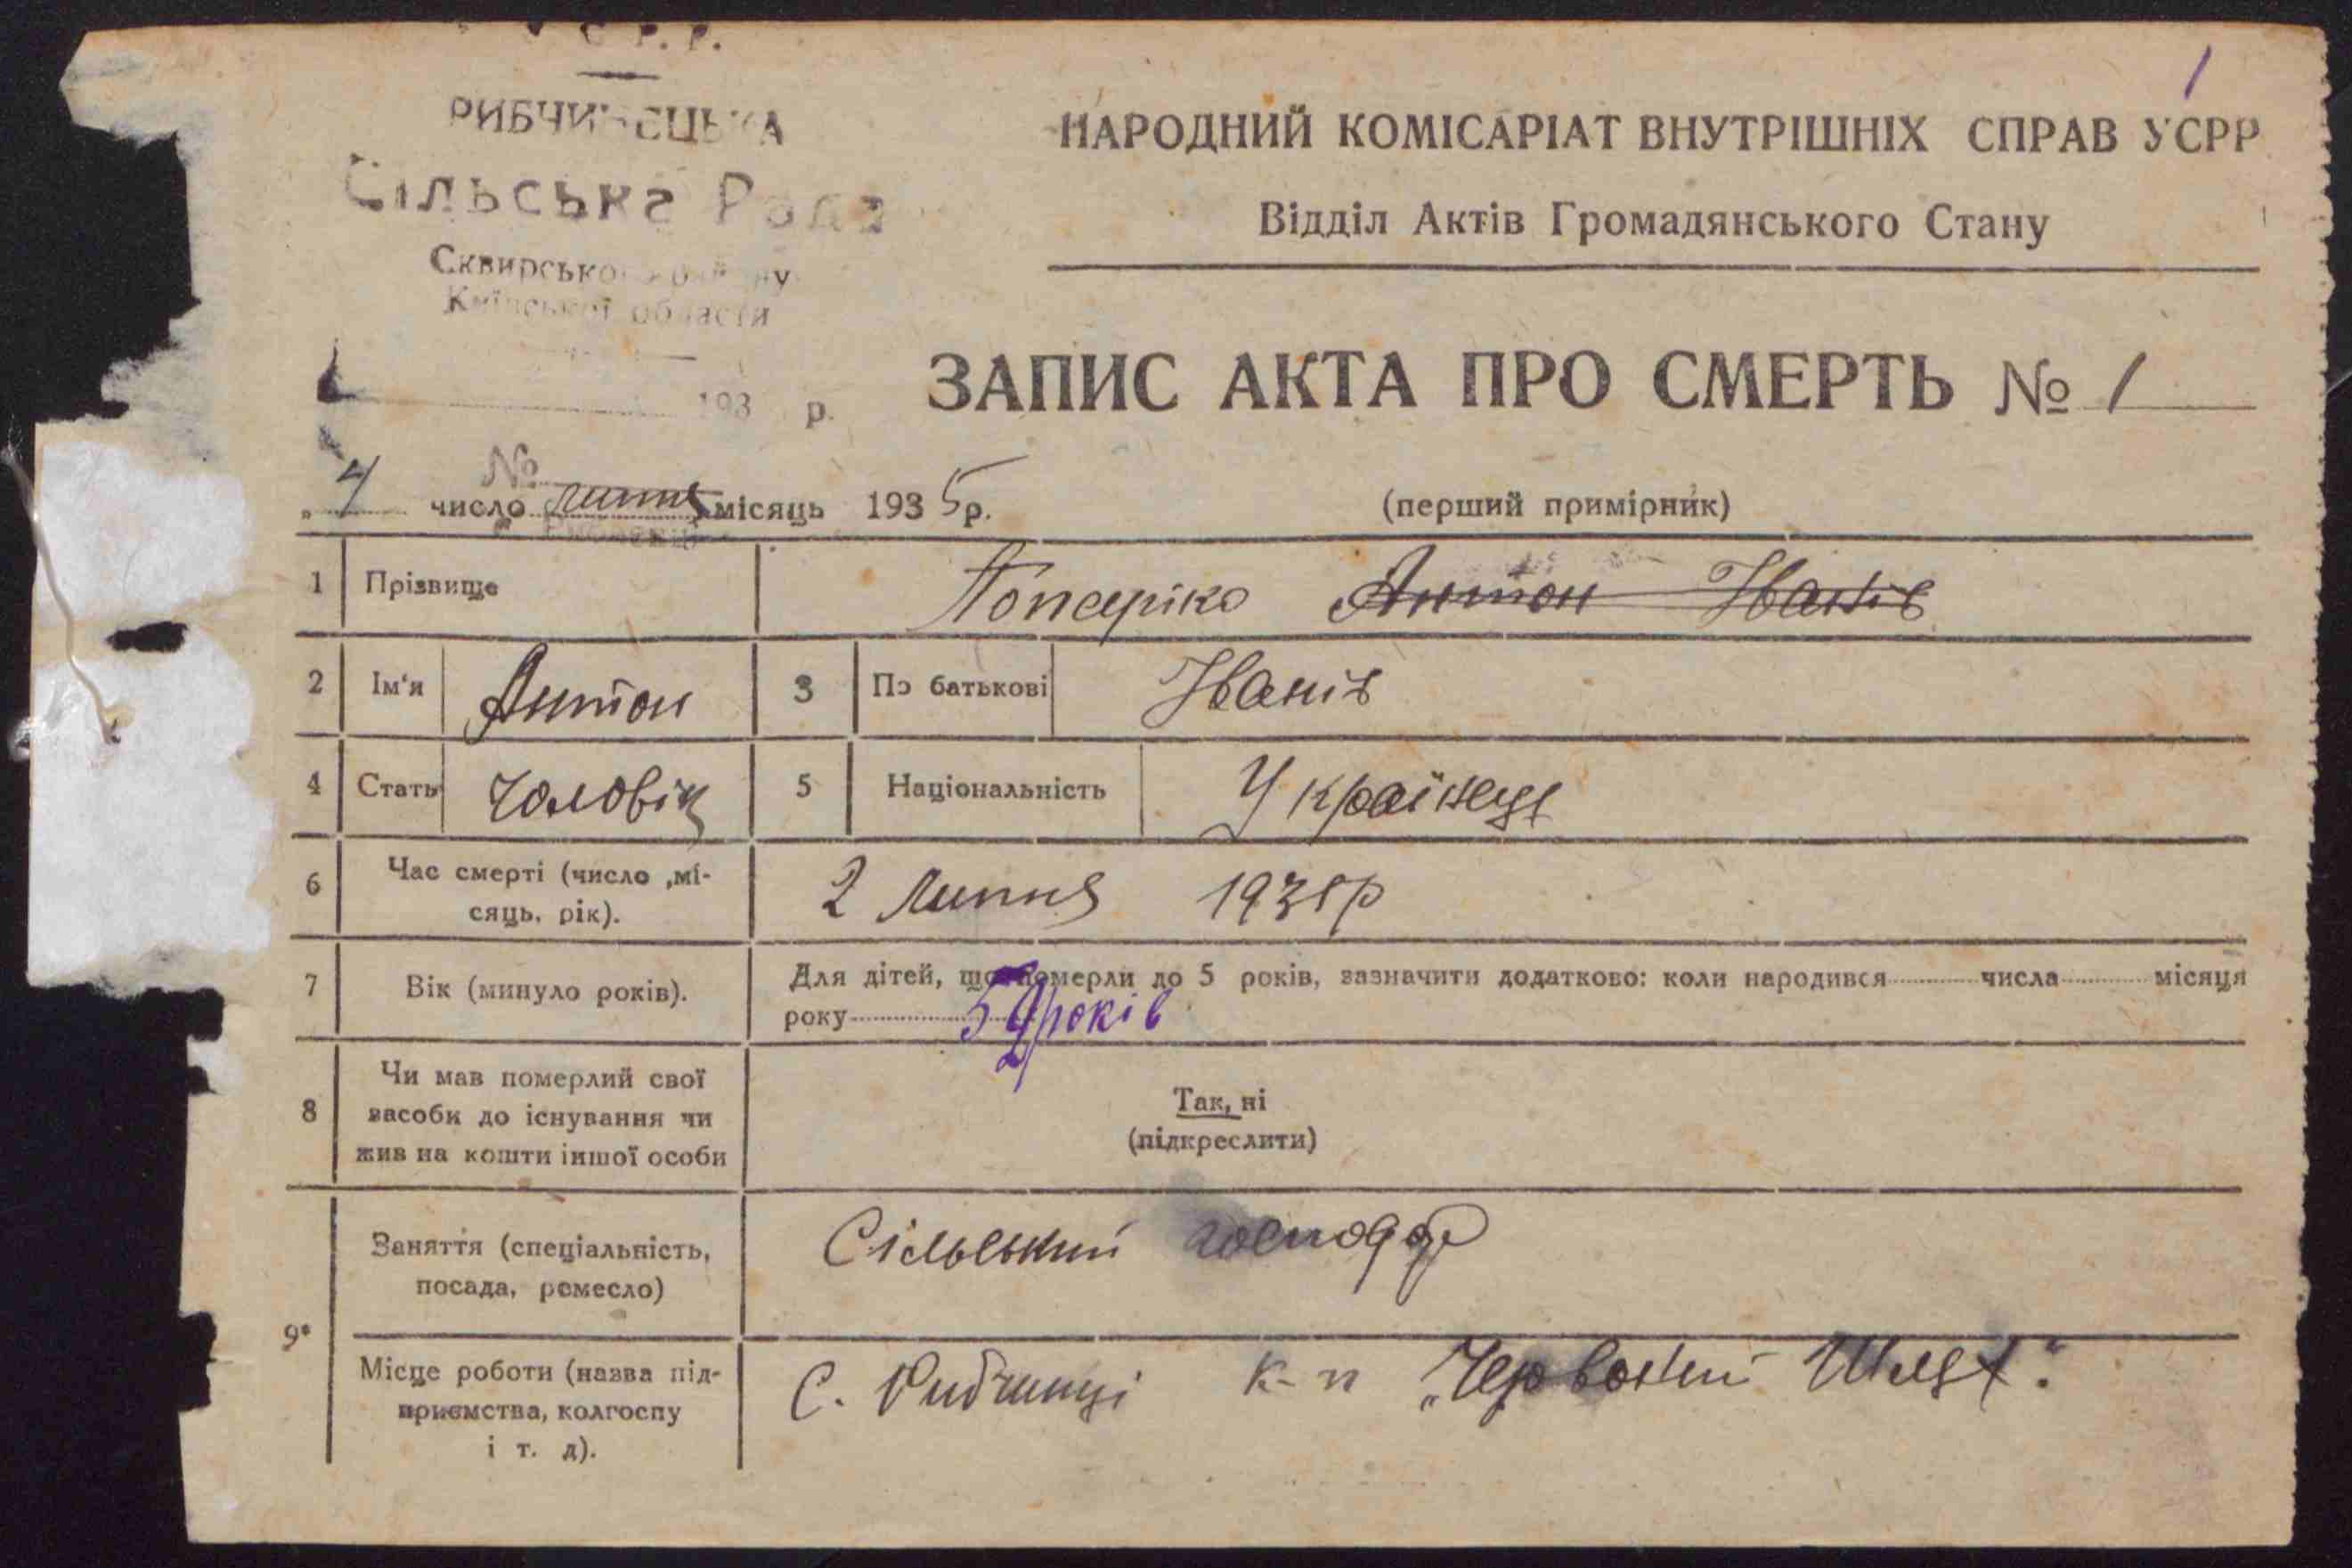 У С Р. Р.
РИБЧИНЕЦЬКА
Сільська Рада
Сквирського району
Київської области
193 р.
№
1
НАРОДНИЙ КОМІСАРІАТ ВНУТРІШНІХ СПРАВ УСРР
Відділ Актів Громадянського Стану
ЗАПИС АКТА ПРО СМЕРТЬ № 1
„4 число липня місяць 1935 р.
(перший примірник)
1 Прізвище Антон Іванів
2 Ім'я Антон 3 По батькові Іванів
4 Стать чоловік 5 Національність Українець
6 Час смерті (число ,мі-
сяць, рік). 2 липня 1935р
7 Вік (минуло років). Для дітей, що померли до 5 років, зазначити додатково: коли народився числа місяця
року років
8 Чи мав померлий свої
засоби до існування чи
жив на кошти іншої особи
Так, ні
(підкреслити)
9* Заняття (спеціальність,
посада, ремесло) Сільський господар
Місце роботи (назва під-
приємства, колгоспу
і т. д). С. Рибчинці к-п „Червоний Шлях".